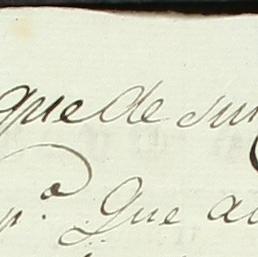 que de su
p.ª Que a